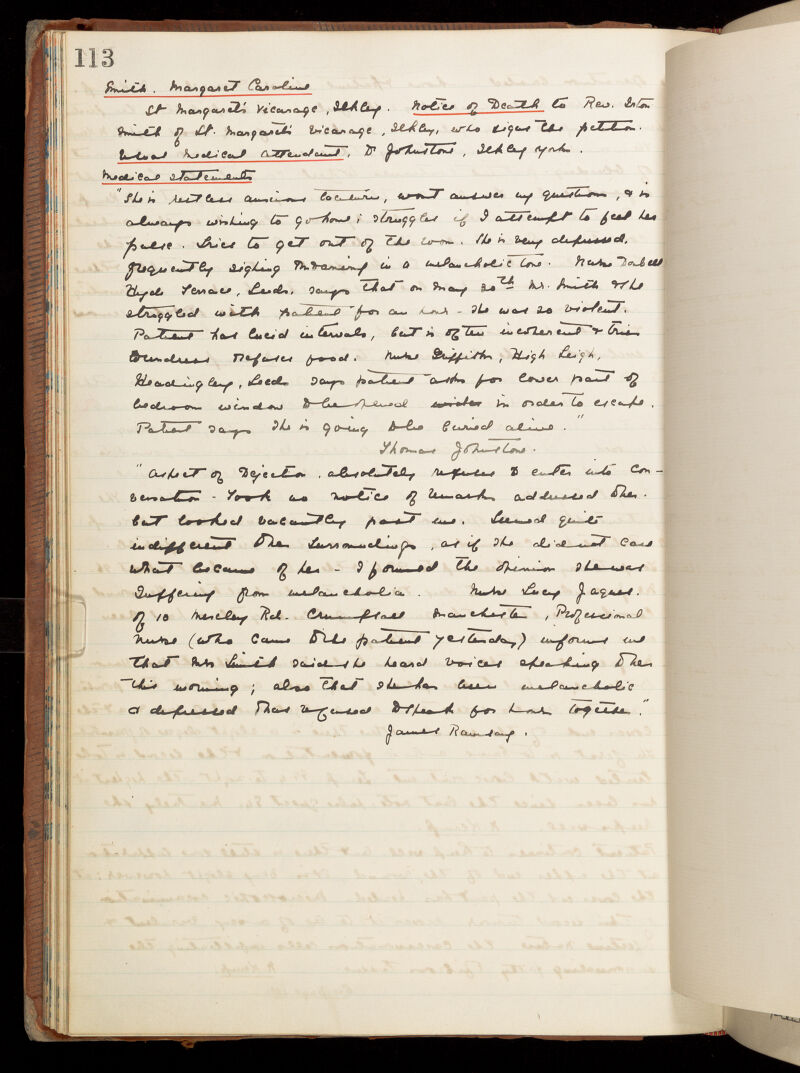 113
Smith. Margaret Caroline
St Margaret's Vicarage, Ilkley. Notice of Death to Rev.
Smith of St. Margaret's Vicarage, Ilkley, who signs the petition.
Usual Medical attendant, Dr Johnstone, Ilkley Yorks.
Medical Statements
"She is restless anxious, wont answer my questions, & is
always wishing to go home; struggles if I attempt to feel her
pulse. Tries to get out of the room. She is very depressed,
frequently sighing & moaning in a melancholic tone. Nurse
Hyde Terrace, Leeds, says that on May 20th Mr. Smith & she
struggled with patient for an hour - she was so violent.
Patient has lucid intervals, but is often incoherent & tries
to undress & refuses food. Nurse Griffiths, High Leigh,
Headingley, Leeds says patient asks for lower part of
bedroom window to be opened in order to escape.
Patient says she is going to be buried alive."
Thomas Johnstone.
"Aspect of Dejection. absolutely refuses to enter into con-
versation - Took no notice of remarks addressed to her.
but looked vacantly past me. Seemed quite
indifferent to her surroundings, as if she did not care
what became of her - I formed the opinion she was
suffering from melancholia. Nurse Lucy Jaques.
of 10 Rd. Crumpsall Manchester, Professional
nurse (who came to the patient yesterday) informs me
that Mrs Smith said she heard voices speaking to her
this morning; also that she has been melancholic
& depressed & has refused to speak for hours together."
James Ramsay.